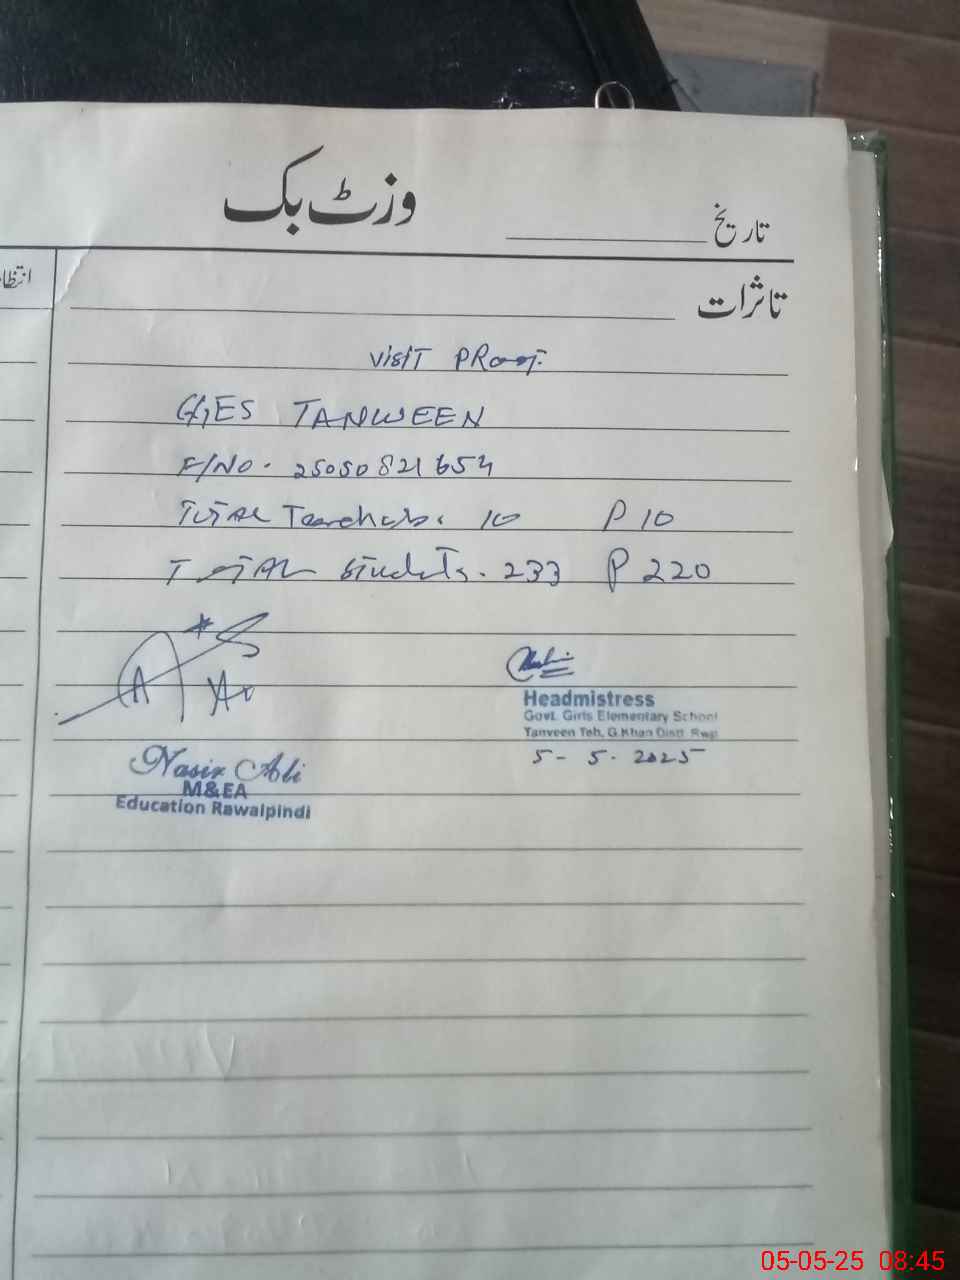 وزٹ بک
تاریخ
انتظا
تاثرات
Visit PRoof.
GGES TANWEEN
F/NO. 25050821654
TOTAL Teachers. 10 P 10
TOTAL Students. 233 P 220
Headmistress
Govt. Girls Elementary School
Tanveen Teh, G.Khan Distt. Rwp
5-5-2025
Nasir Ali
M&EA
Education Rawalpindi
05-05-25 08:45